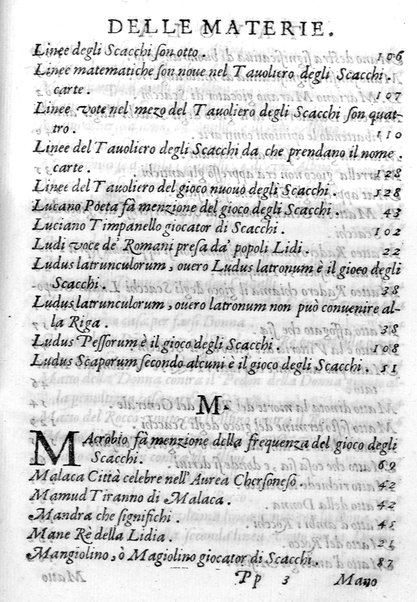 DELLE MATERIE.
Linee degli Scacchi son otto. 106
Linee matematiche son noue nel Tauoliero degli Scacchi.
carte. 107
Linee vote nel mezo del Tauoliero degli Scacchi son quat
tro. 110
Linee del Tauoliero degli Scacchi da che prendano il nome.
carte. 128
Linee del Tauoliero del gioco nuouo degli Scacchi. 128
Lucano Poeta fà menzione del gioco degli Scacchi. 43
Luciano Timpanello giocator di Scacchi. 102
Ludi voce de' Romani presa da' popoli Lidi. 22
Ludus latrunculorum, ouero Ludus latronum è il gioco degli
Scacchi. 38
Ludus latrunculorum, ouero latronum non può conuenire al-
la Riga. 38
Ludus Pessorum è il gioco degli Scacchi. 108
Ludus Scaporum secondo alcuni è il gioco degli Scacchi. 51
M.
MAcrobio, fà menzione della frequenza del gioco degli
Scacchi. 69
Malaca Città celebre nell'Aurea Chersoneso. 42
Mamud Tiranno di Malaca. 42
Mandra che significhi. 45
Mane Rè della Lidia. 21
Mangiolino, ò Magiolino giocator di Scacchi. 87
Pp 3 Mano